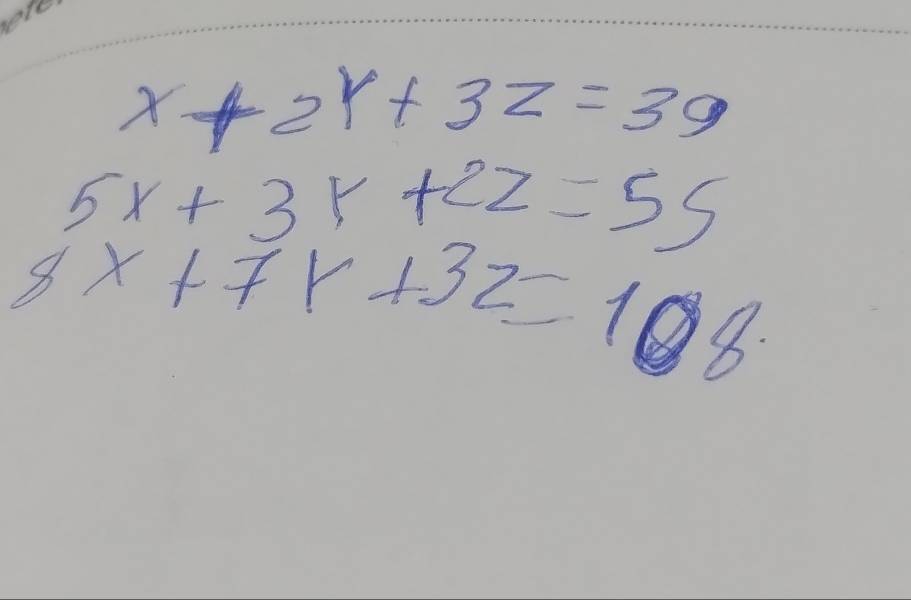 x + 2Y + 3Z = 39
5x + 3Y + 2Z = 55
8x + 7Y + 3Z = 108